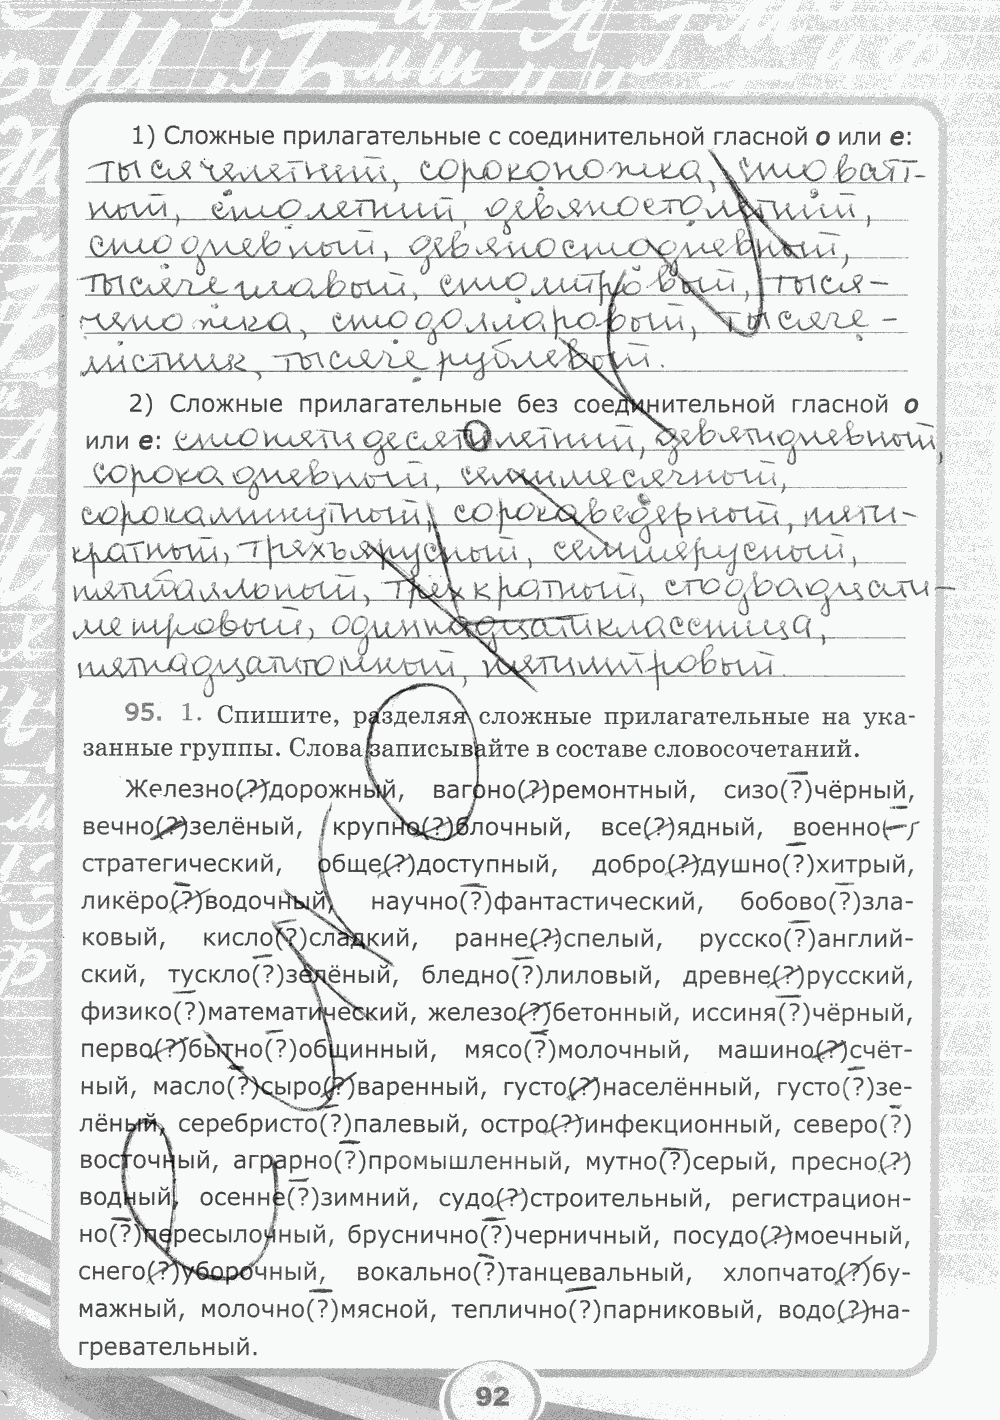 1) Сложные прилагательные с соединительной гласной о или е:
тысячелетний, сороконожка, стоватт-
ный, столетний, девяностолетний,
стодневный, девяностодневный,
тысячеглавый, стомитровый, тыся-
ченожка, стодолларовый, тысяче-
листник, тысячерублевый.
2) Сложные прилагательные без соединительной гласной о
или е: стопятидесятилетний, девятидневный,
сорокадневный, семимесячный,
сорокаминутный, сорокаведерный, пяти-
кратный, трехъярусный, семиярусный,
пятибалльный, трехкратный, стодвадцати-
метровый, одиннадцатиклассница,
пятнадцатитонный, пятимитровый.
95. 1. Спишите, разделяя сложные прилагательные на ука-
занные группы. Слова записывайте в составе словосочетаний.
Железно(?)дорожный, вагоно(?)ремонтный, сизо(?)чёрный,
вечно(?)зелёный, крупно(?)блочный, все(?)ядный, военно(
стратегический, обще(?)доступный, добро(?)душно(?)хитрый,
ликёро(?)водочный, научно(?)фантастический, бобово(?)зла-
ковый, кисло(?)сладкий, ранне(?)спелый, русско(?)англий-
ский, тускло(?)зелёный, бледно(?)лиловый, древне(?)русский,
физико(?)математический, железо(?)бетонный, иссиня(?)чёрный,
перво(?)бытно(?)общинный, мясо(?)молочный, машино(?)счёт-
ный, масло(?)сыро(?)варенный, густо(?)населённый, густо(?)зе-
лёный, серебристо(?)палевый, остро(?)инфекционный, северо(?)
восточный, аграрно(?)промышленный, мутно(?)серый, пресно(?)
водный, осенне(?)зимний, судо(?)строительный, регистрацион-
но(?)пересылочный, бруснично(?)черничный, посудо(?)моечный,
снего(?)уборочный, вокально(?)танцевальный, хлопчато(?)бу-
мажный, молочно(?)мясной, теплично(?)парниковый, водо(?)на-
гревательный.
92